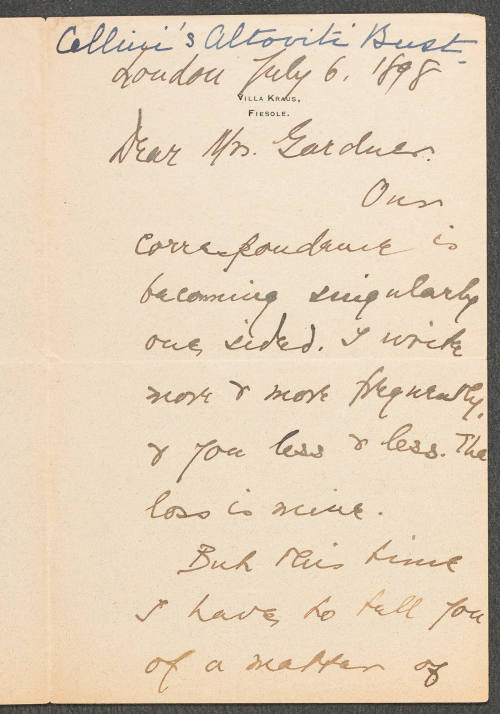 Cellini's Altoviti Bust
London July 6, 1898
VILLA KRAUS,
FIESOLE.
Dear Mrs. Gardner.
Our
correspondence is
becoming singularly
one sided. I write
more & more frequently,
& you less & less. The
loss is mine.
But this time
I have to tell you
of a matter of